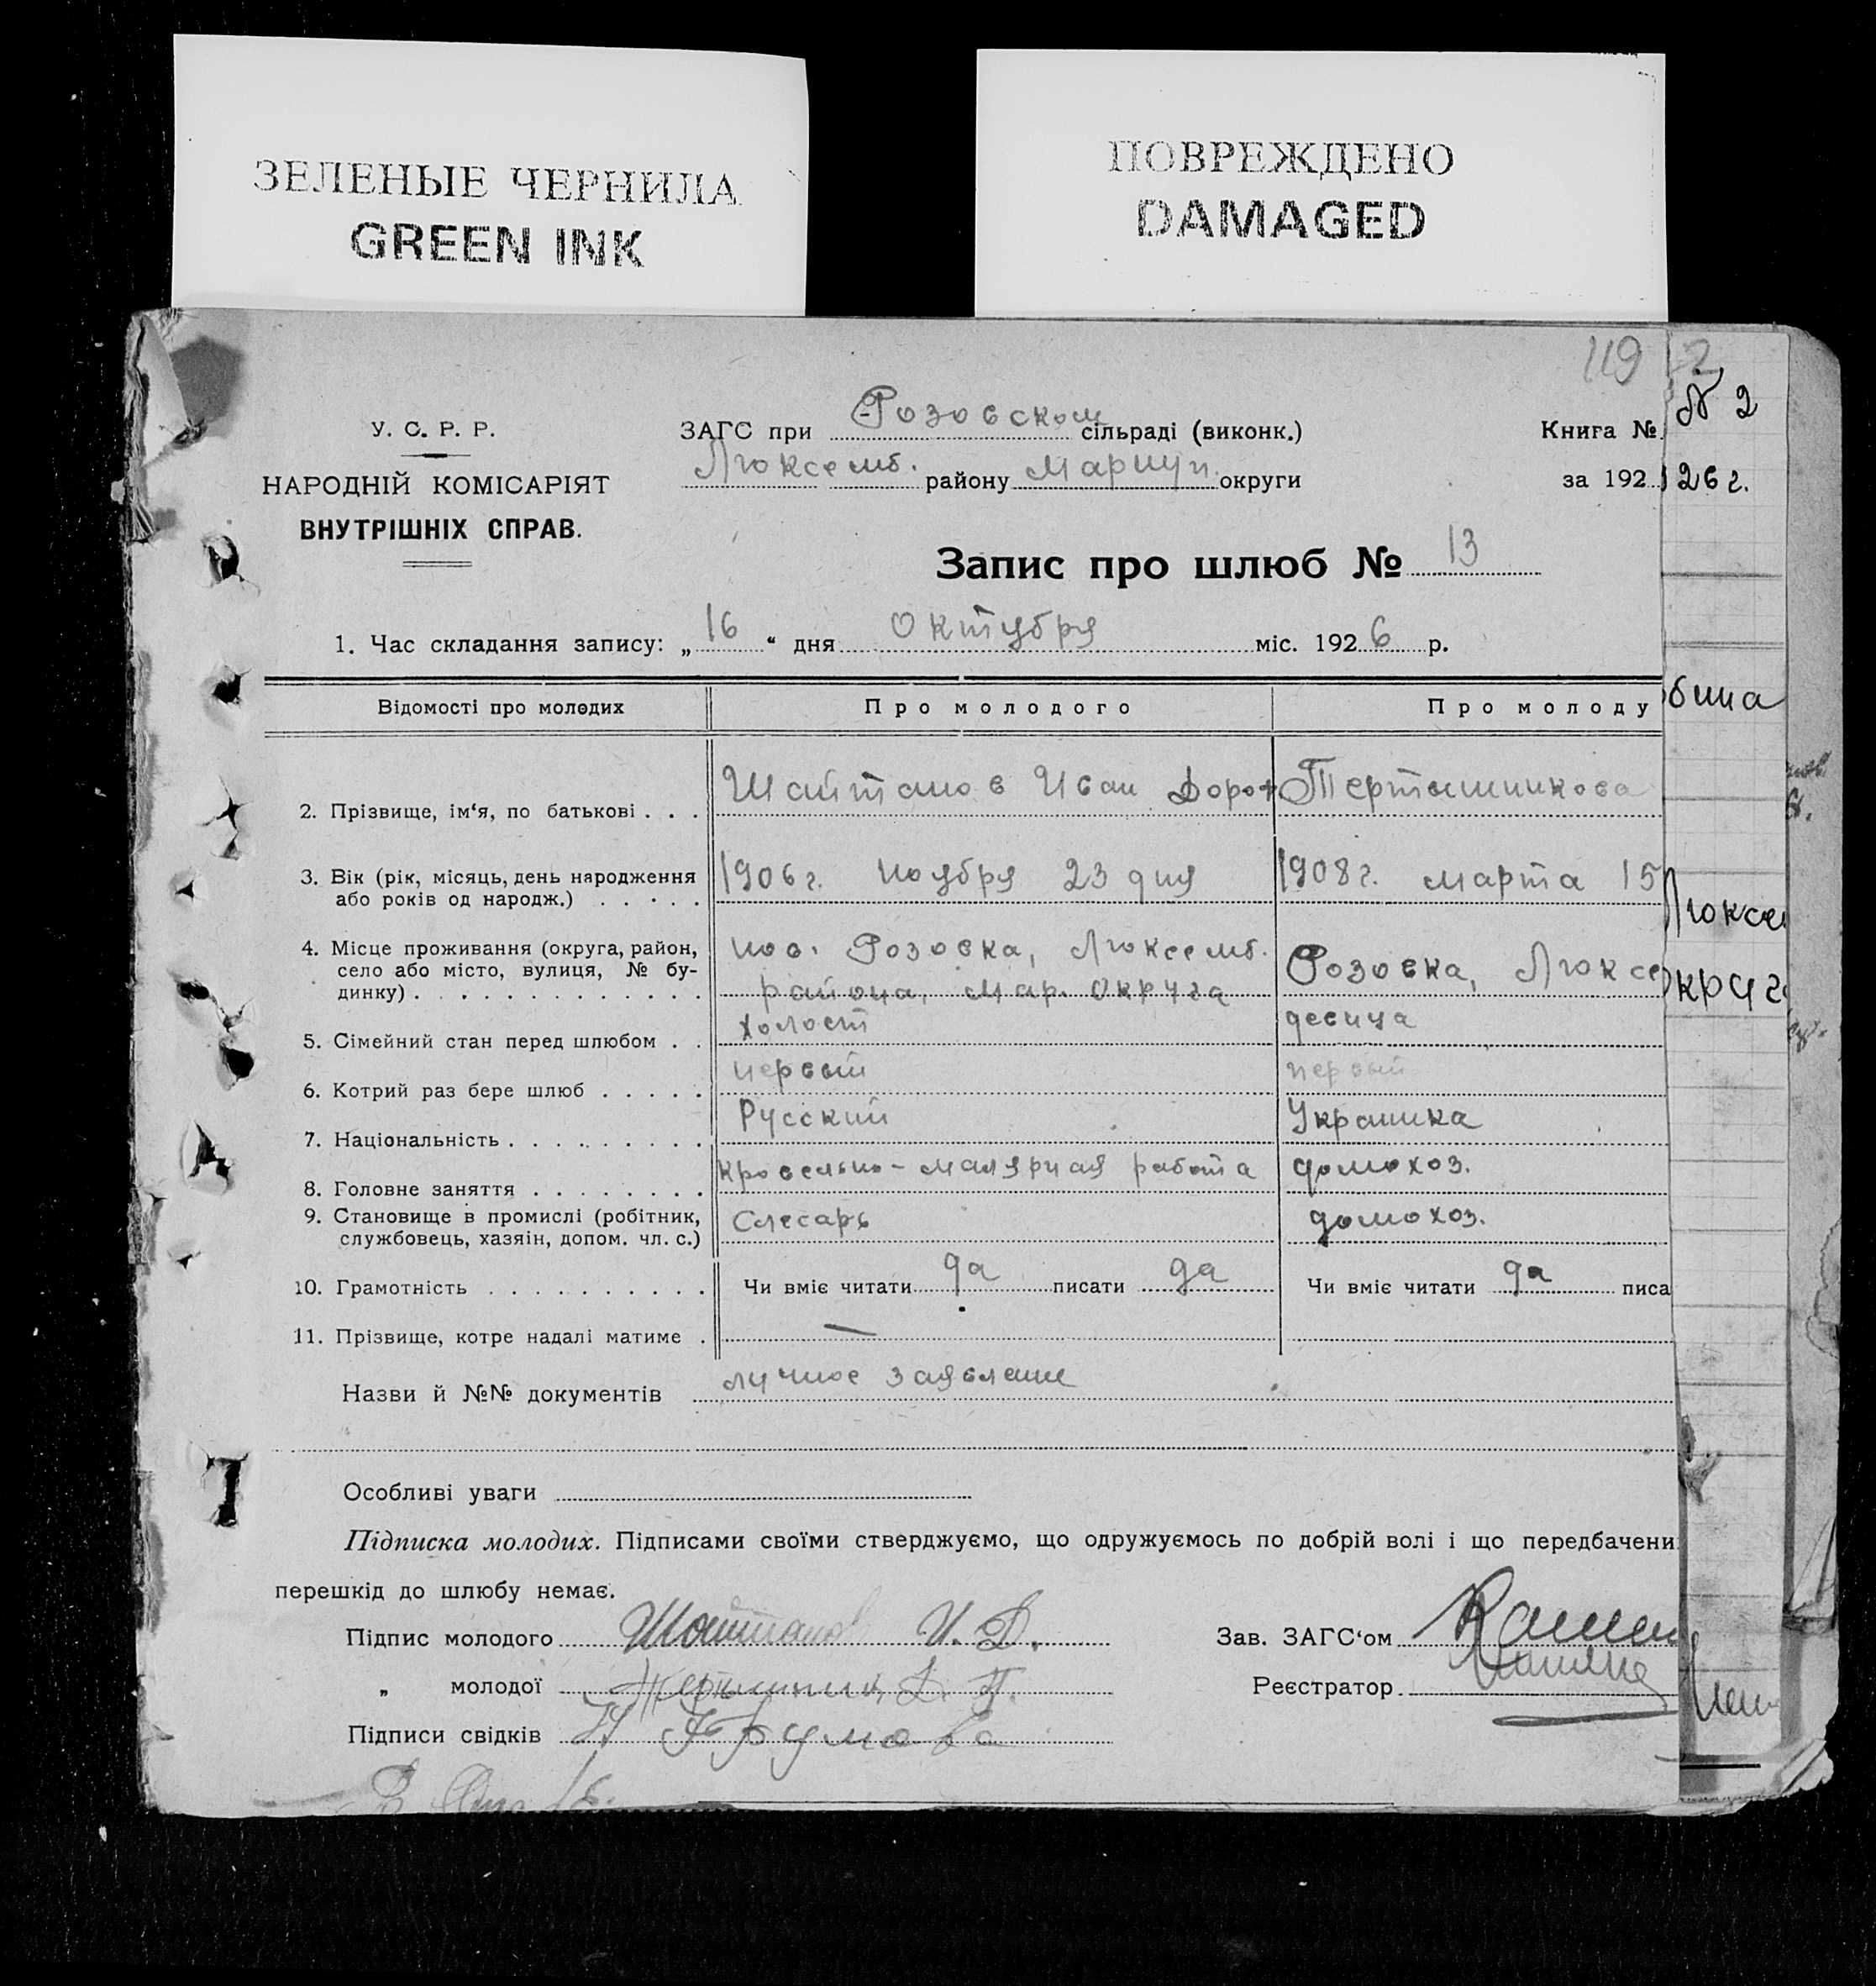 ЗЕЛЕНЫЕ ЧЕРНИЛА
GREEN INK
ПОВРЕЖДЕНО
DAMAGED
119 2
У. С. Р. Р.
НАРОДНІЙ КОМІСАРІЯТ
ВНУТРІШНІХ СПРАВ.
ЗАГС при Розовском сільраді (виконк.)
Люксемб. району Мариуп. округи
Книга № N 2
за 192 26 г.
Запис про шлюб № 13
1. Час складання запису: „ 16 “ дня Октября міс. 1926 р.
Відомості про молодих Про молодого Про молоду
бина
2. Прізвище, ім‘я, по батькові . . . Шайтанов Иван Дороф Терташникова
3. Вік (рік, місяць, день народження 1906 г. ноября 23 дня 1908 г. марта 15
або років од народж.) . . . . .
Люксе
4. Місце проживання (округа, район, пос. Розовка, Люксемб.
село або місто, вулиця, № бу- Розовка, Люксе
динку) . . . . . . . . . . . . . района, Мар. Округа
округ
5. Сімейний стан перед шлюбом . . холост девица
6. Котрий раз бере шлюб . . . . . первый первый
7. Національність . . . . . . . . . Русский Украинка
8. Головне заняття . . . . . . . . кровельно-малярная работа домохоз.
9. Становище в промислі (робітник, Слесарь домохоз.
службовець, хазяін, допом. чл. с.)
10. Грамотність . . . . . . . . . . Чи вміє читати да писати да Чи вміє читати да писа
11. Прізвище, котре надалі матиме . —
Назви й №№ документів личное заявление
Особливі уваги
Підписка молодих. Підписами своїми стверджуємо, що одружуємось по добрій волі і що передбачени
перешкід до шлюбу немає.
Підпис молодого Шайтанов И. Д. Зав. ЗАГС‘ом
„ молодої Д. П. Реєстратор
Підписи свідків